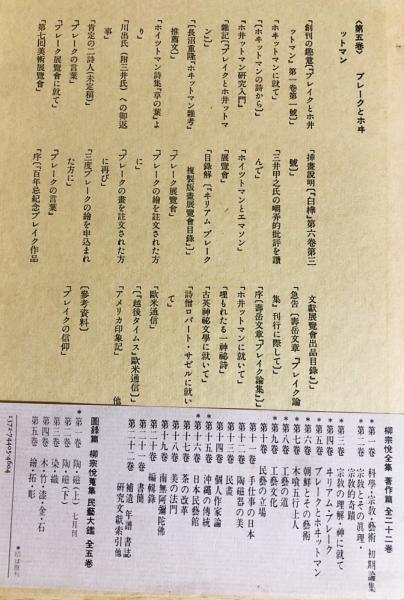 〈第五巻〉 ブレークとホヰットマン
「創刊の趣意〔『ブレイクとホ井ットマン』第一巻第一號〕」
「ホヰットマンに就て」
「〔ホヰットマンの詩から〕」
「ホ井ットマン研究入門」
「雜記〔『ブレイクとホ井ットマン』〕」
「〔長沼重隆『ホヰットマン雜考』推薦文〕」
「ホイツトマン詩集『草の葉』より」
「川出氏（附三井氏）への御返事」
「肯定の二詩人（未定稿）」
「ブレークの言葉」
「ブレーク展覽會に就て」
「第七回美術展覽會」
「挿畫說明〔『白樺』第六巻第三號〕」
「三井甲之氏の嘲弄的批評を讀んで」
「ホイツトマンとエマソン」
「展覽會」
「目錄解〔『ヰリアム ブレーク複製版畫展覽會目錄』〕」
「ブレーク展覽會」
「ブレークの繪を註文された方に」
「ブレークの畫を註文された方に再び」
「三度ブレークの繪を申込まれた方に」
「ブレークの言葉」
「序〔『百年忌紀念ブレイク作品文獻展覽會出品目錄』〕」
「急告〔壽岳文章『ブレイク論集』刊行に際して〕」
「序〔壽岳文章『ブレイク論集』〕」
「ホ井ットマンに就いて」
「埋もれたる一神祕詩」
「古英神祕文學に就いて」
「詩僧ロバート・サゼルに就いて」
「歐米通信」
「〔『越後タイムス』歐米通信〕」
「アメリカ印象記」 他
〔參考資料〕
「ブレイクの信仰」
柳宗悅全集 著作篇 全二十二卷
*第一卷 科學・宗教・藝術 初期論集
*第二卷 宗教とその眞理・宗教的奇蹟
*第三卷 宗教の理解・神に就て
*第四卷 ヰリアム・ブレーク
*第五卷 ブレークとホヰットマン
*第六卷 朝鮮とその藝術
*第七卷 木喰五行上人
*第八卷 工藝の道
*第九卷 工藝文化
*第十卷 民藝の立場
第十一卷 手仕事の日本
第十二卷 陶磁器の美
第十三卷 民畫
第十四卷 個人作家論
*第十五卷 沖繩の傳統
*第十六卷 日本民藝館
第十七卷 茶の改革
第十八卷 美の法門
第十九卷 南無阿彌陀佛
第二十卷 編輯錄
第二十一卷 書簡
第二十二卷 補遺 年譜 書誌 研究文獻 索引他
圖錄篇 柳宗悅蒐集 民藝大鑑 全五卷
*第一卷 陶・磁（上） 七月刊
第二卷 陶・磁（下）
第三卷 染・織
第四卷 木・竹・漆・金・石
第五卷 繪・拓・彫
*印は既刊